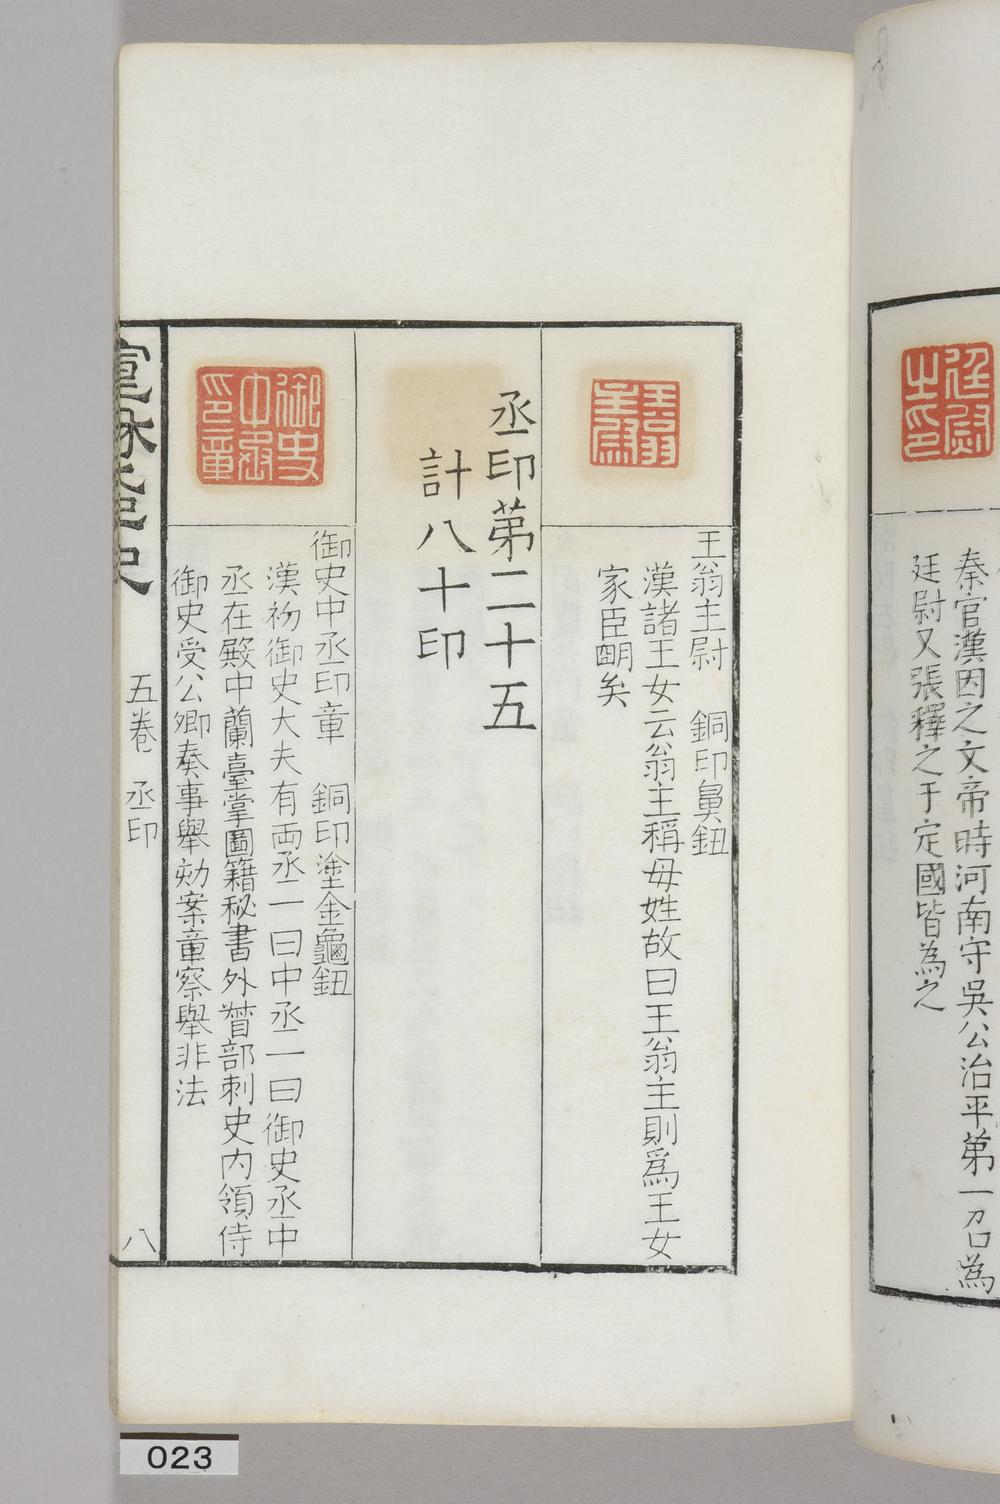 廷尉之印
秦官漢因之文帝時河南守吳公治平第一召為
廷尉又張釋之于定國皆為之
王翁主尉
王翁主尉 銅印鼻鈕
漢諸王女云翁主稱母姓故曰王翁主則爲王女
家臣明矣
丞印第二十五
計八十印
御史中丞印章
御史中丞印章 銅印塗金龜鈕
漢初御史大夫有兩丞一曰中丞一曰御史丞中
丞在殿中蘭臺掌圖籍秘書外督部刺史內領侍
御史受公卿奏事舉劾案章察舉非法
五卷 丞印
八
023